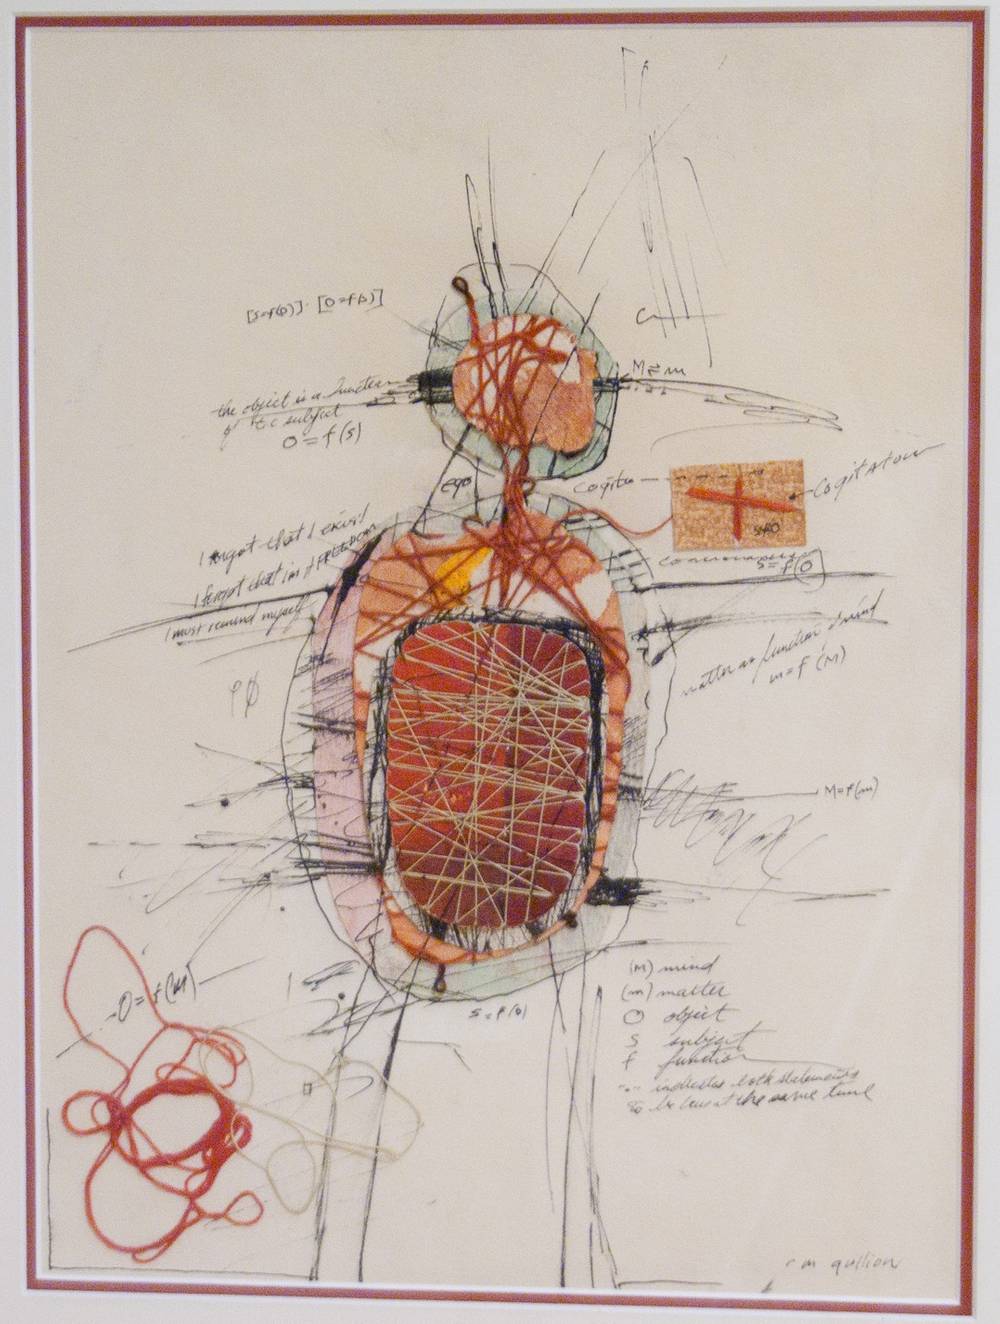 [s=f(o)]·[O=f(s)]
the object is a function
of the subject
O=f(s)
M⇄m
ego
Cogito
Cogitatum
I forgot that I exist
I forgot that I'm FREEDOM
I must remind myself
s=f(O)
matter as function of mind
m=f(M)
PØ
M=f(m)
O=f(M)
s=f(o)
(M) mind
(m) matter
O object
S subject
f function
"·" indicates both statements
to be true at the same time
r m gullion